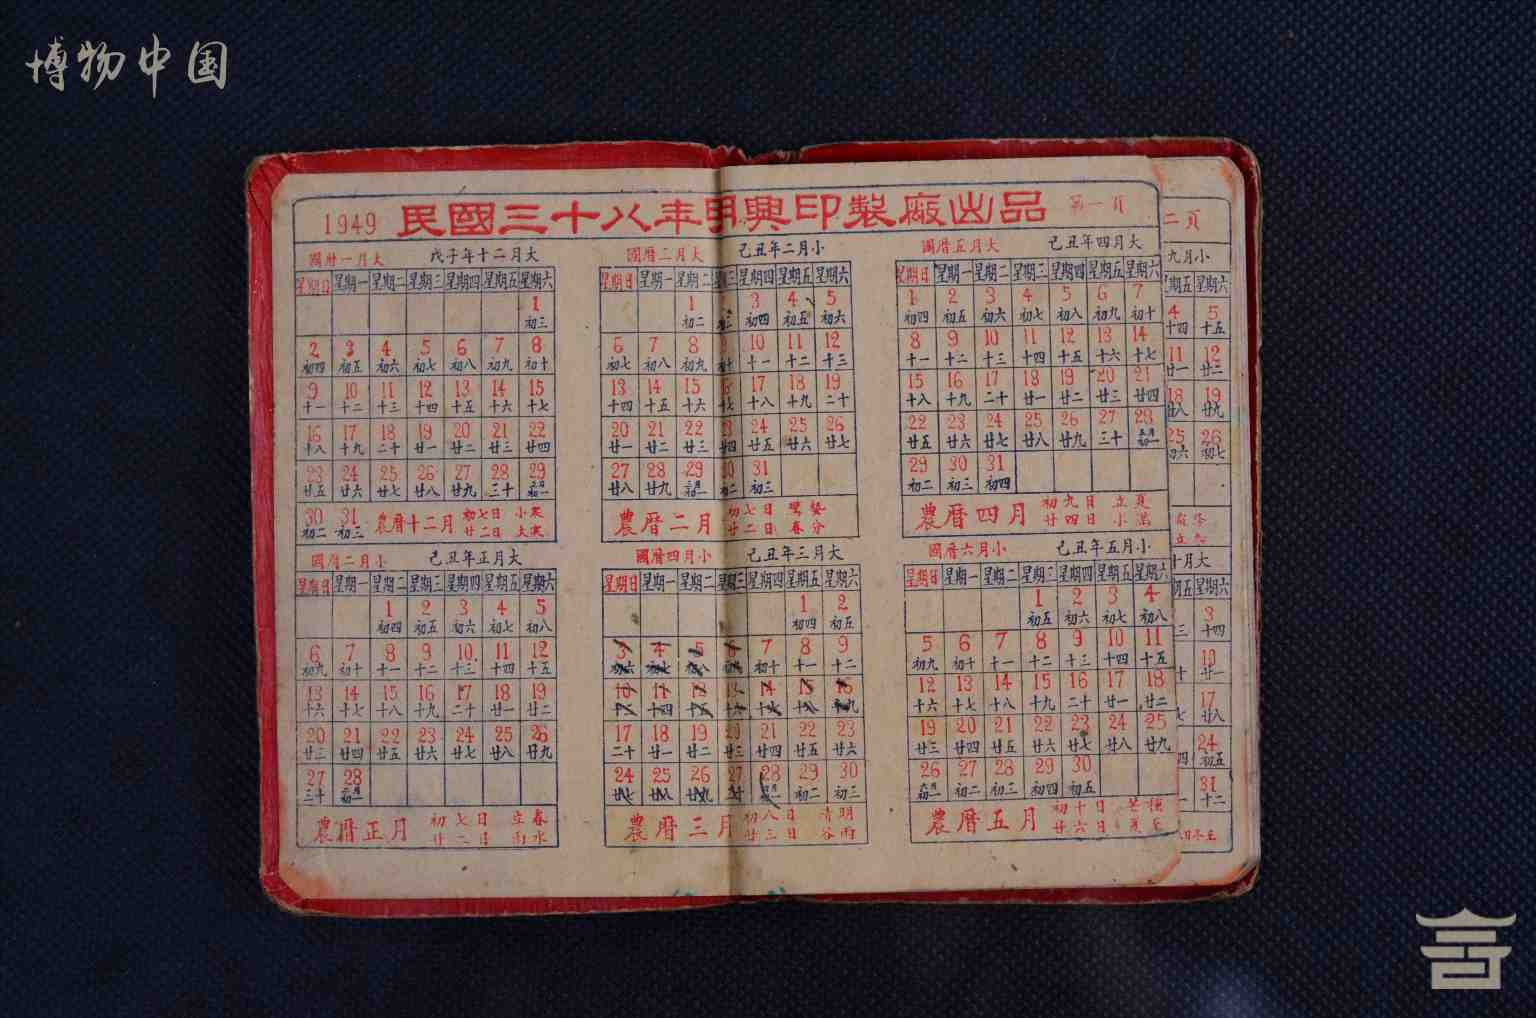 博物中国
1949 民國三十八年明興印製廠出品 第一頁
國曆一月大 戊子年十二月大
星期日 星期一 星期二 星期三 星期四 星期五 星期六
1
初三
2 3 4 5 6 7 8
初四 初五 初六 初七 初八 初九 初十
9 10 11 12 13 14 15
十一 十二 十三 十四 十五 十六 十七
16 17 18 19 20 21 22
十八 十九 二十 廿一 廿二 廿三 廿四
23 24 25 26 27 28 29
廿五 廿六 廿七 廿八 廿九 三十
30 31
初二 初三
農曆十二月 初七日 小寒
廿二日 大寒
國曆二月小 己丑年正月大
星期日 星期一 星期二 星期三 星期四 星期五 星期六
1 2 3 4 5
初四 初五 初六 初七 初八
6 7 8 9 10 11 12
初九 初十 十一 十二 十三 十四 十五
13 14 15 16 17 18 19
十六 十七 十八 十九 二十 廿一 廿二
20 21 22 23 24 25 26
廿三 廿四 廿五 廿六 廿七 廿八 廿九
27 28
三十
農曆正月 初七日 立春
廿二日 雨水
國曆三月大 己丑年二月小
星期日 星期一 星期二 期三 星期四 星期五 星期六
1 3 4 5
初二 初三 初四 初五 初六
6 7 8 10 11 12
初七 初八 初九 初十 十一 十二 十三
13 14 15 16 17 18 19
十四 十五 十六 十七 十八 十九 二十
20 21 22 23 24 25 26
廿一 廿二 廿三 廿四 廿五 廿六 廿七
27 28 29 30 31
廿八 廿九 初二 初三
農曆二月 初七日 驚蟄
廿二日 春分
國曆四月小 己丑年三月大
星期日 星期一 星期二 星期三 星期四 星期五 星期六
1 2
初四 初五
3 4 5 6 7 8 9
初六 初七 初八 初十 十一 十二
10 11 12 13 14 15 16
十三 十四 十五 十六 十七 十八 十九
17 18 19 20 21 22 23
二十 廿一 廿二 廿三 廿四 廿五 廿六
24 25 26 27 28 29 30
廿七 廿八 廿九 三十 初二 初三
農曆三月 初八日 清明
廿三日 谷雨
國曆五月大 己丑年四月大
星期日 星期一 星期二 星期三 星期四 星期五 星期六
1 2 3 4 5 6 7
初四 初五 初六 初七 初八 初九 初十
8 9 10 11 12 13 14
十一 十二 十三 十四 十五 十六 十七
15 16 17 18 19 20 21
十八 十九 二十 廿一 廿二 廿三 廿四
22 23 24 25 26 27 28
廿五 廿六 廿七 廿八 廿九 三十 五月初一
29 30 31
初二 初三 初四
農曆四月 初九日 立夏
廿四日 小滿
國曆六月小 己丑年五月小
星期日 星期一 星期二 星期三 星期四 星期五 星期六
1 2 3 4
初五 初六 初七 初八
5 6 7 8 9 10 11
初九 初十 十一 十二 十三 十四 十五
12 13 14 15 16 17 18
十六 十七 十八 十九 二十 廿一 廿二
19 20 21 22 23 24 25
廿三 廿四 廿五 廿六 廿七 廿八 廿九
26 27 28 29 30
初二 初三 初四 初五
農曆五月 初十日 芒種
廿六日 夏至
二頁
九月小
期五 星期六
4 5
十四 十五
11 12
廿一 廿二
18 19
廿八 廿九
25 26
初六 初七
十月大
期五 星期六
3
十四
10
廿一
17
廿八
24
初五
31
十二